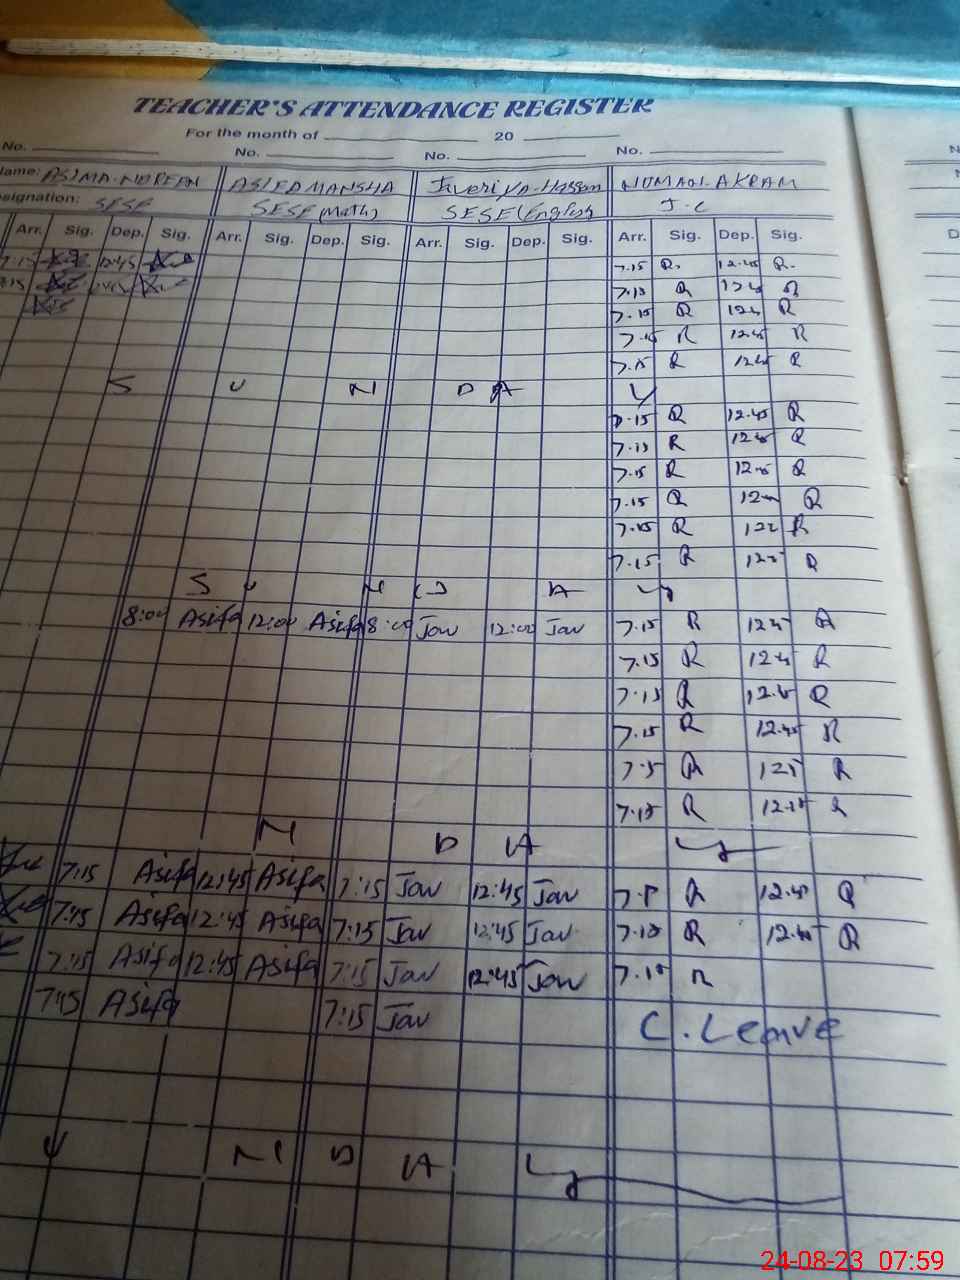 TEACHER'S ATTENDANCE REGISTER
For the month of 20
No. No. No. No.
Name: ASIMA NOREEN ASIFA MANSHA Javeriya Hassan NOMAN AKRAM
Designation: SESE SESE (Math) SESE (English) J.C
Arr. Sig. Dep. Sig. Arr. Sig. Dep. Sig. Arr. Sig. Dep. Sig. Arr. Sig. Dep. Sig.
7:15 12:45 7.15 R. 12.45 R.
7:15 7.15 R R
7.15 R R
7.15 R 12.45 R
7.15 R 12.45 R
S U N D A Y
7.15 R 12.45 R
7.15 R 12.45 R
7.15 R 12.45 R
7.15 R R
7.15 R R
7.15 R R
S U N D A Y
8:00 Asifa 12:00 Asifa 8:00 Jav 12:00 Jav 7.15 R 12.45 R
7.15 R 12.45 R
7.15 R 12.45 R
7.15 R 12.45 R
R R
7.15 R R
N D A Y
7:15 Asifa 12:45 Asifa 7:15 Jav 12:45 Jav R 12.45 R
7:15 Asifa 12:45 Asifa 7:15 Jav 12:45 Jav 7.15 R 12.45 R
7:15 Asifa 12:45 Asifa 7:15 Jav 12:45 Jav 7.15 R
7:15 Asifa 7:15 Jav C. Leave
U N D A Y
24-08-23 07:59